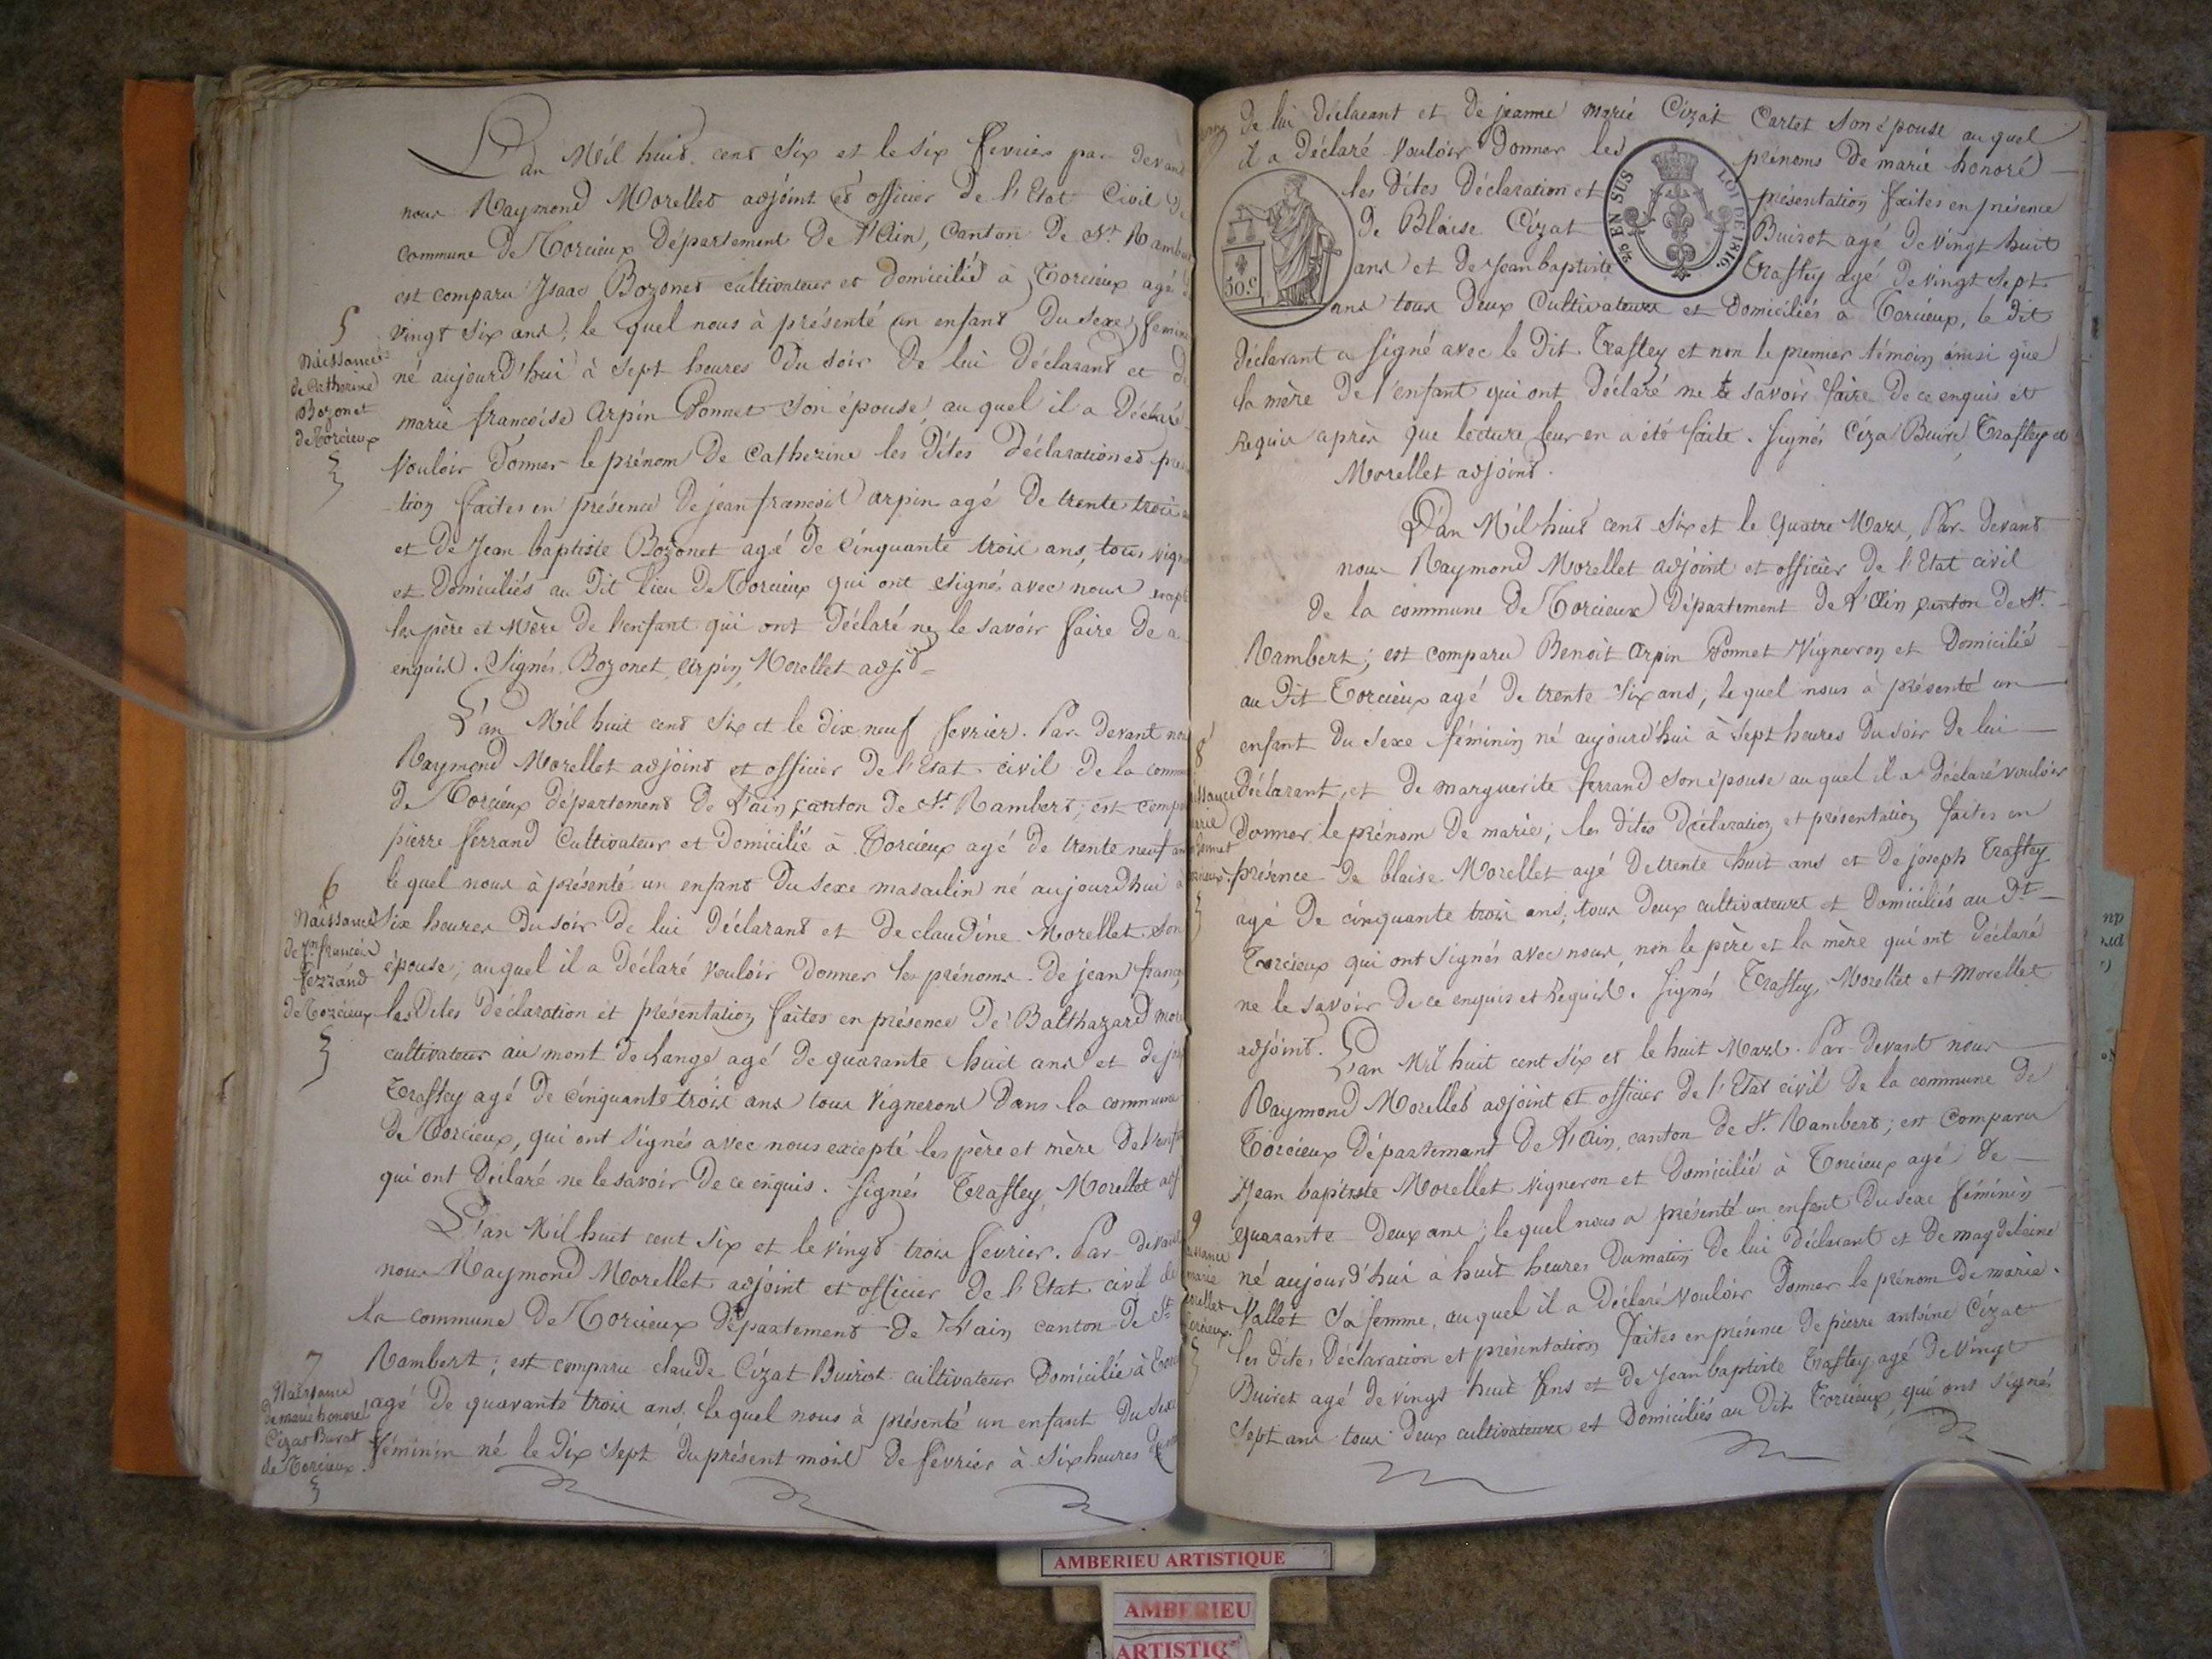 L'an Mil huit cent Six et le Six fevrier par devant
nous Raymond Morellet adjoint et officier de l'Etat Civil de
commune de Torcieux Département de l'Ain, Canton de St. Rambert
est comparu Isaac Bozonet cultivateur et domicilié à Torcieux agé de
vingt six ans, le quel nous à présenté un enfant du sexe féminin
né aujourd'hui à sept heures du soir de lui déclarant et de
marie francoise Arpin Ponnet son épouse, au quel il a déclaré
vouloir donner le prénom de Catherine les dites déclaration et présen
-tion faites en présence de jean francois arpin agé de trente trois
et de Jean baptiste Bozonet agé de Cinquante trois ans, tous vign
et domiciliés au dit lieu de Torcieux qui ont signés avec nous except
les père et mère de l'enfant qui ont déclaré ne le savoir faire de ce
enquis. Signés Bozonet, Arpin, Morellet adjt
5
Naissance
de Catherine
Bozonet
de Torcieux
L'an Mil huit cent Six et le dix neuf fevrier. Par devant nous
Raymond Morellet adjoint et officier de l'Etat civil de la comm
de Torcieux département de l'ain, canton de St Rambert; est comp
pierre ferrand Cultivateur et domicilié à Torcieux agé de trente neuf ans
le quel nous à présenté un enfant du sexe masculin né aujourdhui à
Six heures du soir de lui déclarant et de claudine Morellet son
épouse; auquel il a déclaré vouloir donner les prénoms de jean franc
les dites déclaration et présentation faites en présence de Balthazard mor
cultivateur au mont de lange agé de quarante huit ans et de jo
Trassey agé de Cinquante trois ans tous vignerons dans la commune
de Torcieux, qui ont signés avec nous excepté les père et mère de l'enf
qui ont déclaré ne le savoir de ce enquis. Signés Trassey, Morellet adj
6
Naissance
de Jn francois
ferrand
de Torcieux
L'an Mil huit cent Six et le vingt trois fevrier. Par devant
nous Raymond Morellet adjoint et officier de l'Etat civil de
la commune de Torcieux département de l'ain canton de St
Rambert; est comparu claude Cizat Buirot cultivateur domicilié à Torc
agé de quarante trois ans. le quel nous à présenté un enfant du sexe
féminin né le dix sept du présent mois de fevrier à six heures du
7
Naissance
de marie honoré
Cizat Burat
de Torcieux
de lui déclarant et de jeanne marie Cizat Cartet son épouse au quel
il a déclaré vouloir donner les prénoms de marie honoré
les dites déclaration et présentation faites en présence
de Blaise Cizat Buirot agé de vingt huit
ans et de Jean baptiste Trassey agé de vingt sept
ans tous deux cultivateurs et domiciliés à Torcieux, le dit
déclarant a signé avec le dit Trassey et non le premier témoin ainsi que
la mère de l'enfant qui ont déclaré ne le savoir faire de ce enquis et
Requis après que lecture leur en a été faite. Signés Ciza Buire, Trassey et
Morellet adjoint.
50.c
25 EN SUS
LOI DE 1816.
L'an Mil huit cent Six et le quatre Mars, Par devant
nous Raymond Morellet adjoint et officier de l'Etat civil
de la commune de Torcieux Département de l'Ain, canton de St.
Rambert; est comparu Benoit Arpin Ponnet Vigneron et domicilié
au dit Torcieux agé de trente six ans, le quel nous à présenté un
enfant du sexe féminin né aujourd'hui à sept heures du soir de lui
déclarant, et de marguerite ferrand son épouse au quel il a déclaré vouloir
donner le prénom de marie; les dites déclaration et présentation faites en
présence de blaise Morellet agé de trente huit ans et de joseph Trassey
agé de cinquante trois ans, tous deux cultivateurs et domiciliés au Dt
Torcieux qui ont signés avec nous, non le père et la mère qui ont déclaré
ne le savoir de ce enquis et Requis. Signés Trassey, Morellet et Morellet
adjoint.
8
L'an Mil huit cent six et le huit Mars. Par devant nous
Raymond Morellet adjoint et officier de l'Etat civil de la commune de
Torcieux Département de l'Ain, canton de St. Rambert; est comparu
Jean baptiste Morellet vigneron et domicilié à Torcieux agé de
quarante deux ans; le quel nous a présenté un enfant du sexe féminin
né aujourd'hui à huit heures du matin de lui déclarant et de magdelaine
Vallet sa femme, au quel il a déclaré vouloir donner le prénom de marie.
les dites déclaration et présentation faites en présence de pierre antoine Cizat
Buiret agé de vingt huit ans et de Jean baptiste Trassey agé de vingt
sept ans tous deux cultivateurs et domiciliés au dit Torcieux, qui ont signés
9
AMBERIEU ARTISTIQUE
AMBERIEU
ARTISTIQ